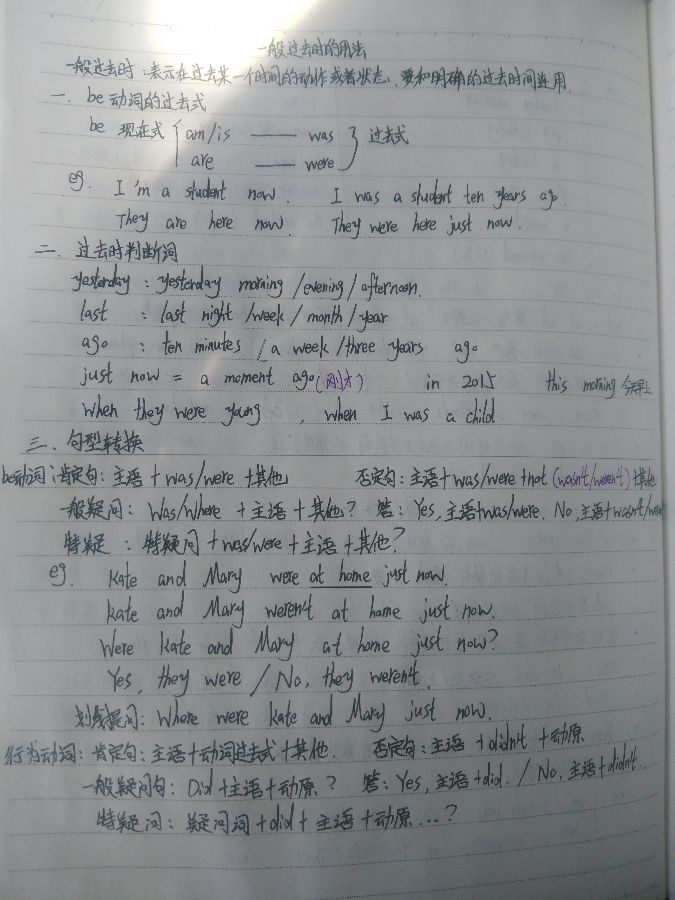 一般过去时的用法
一般过去时：表示在过去某一个时间的动作或者状态，要和明确的过去时间连用
一、be动词的过去式
be 现在式 { am/is —— was } 过去式
are —— were
eg. I'm a student now. I was a student ten years ago.
They are here now. They were here just now.
二、过去时判断词
yesterday : yesterday morning /evening / afternoon.
last : last night /week / month / year
ago : ten minutes / a week /three years ago
just now = a moment ago (刚才) in 2015 this morning 今天早上
when they were young , when I was a child
三、句型转换
be动词：肯定句：主语 + was/were + 其他 否定句：主语 + was/were + not (wasn't/weren't) + 其他
一般疑问：Was/Where + 主语 + 其他？ 答：Yes, 主语+was/were. No, 主语+wasn't/
特疑：特疑问 + was/were + 主语 + 其他？
eg. Kate and Mary were at home just now.
Kate and Mary weren't at home just now.
Were Kate and Mary at home just now?
Yes, they were / No, they weren't.
划线提问：Where were Kate and Mary just now.
行为动词：肯定句：主语+动词过去式+其他. 否定句：主语 + didn't + 动原
一般疑问句：Did + 主语 + 动原？ 答：Yes, 主语+did. / No, 主语+didn't.
特疑问：疑问词 + did + 主语 + 动原...？